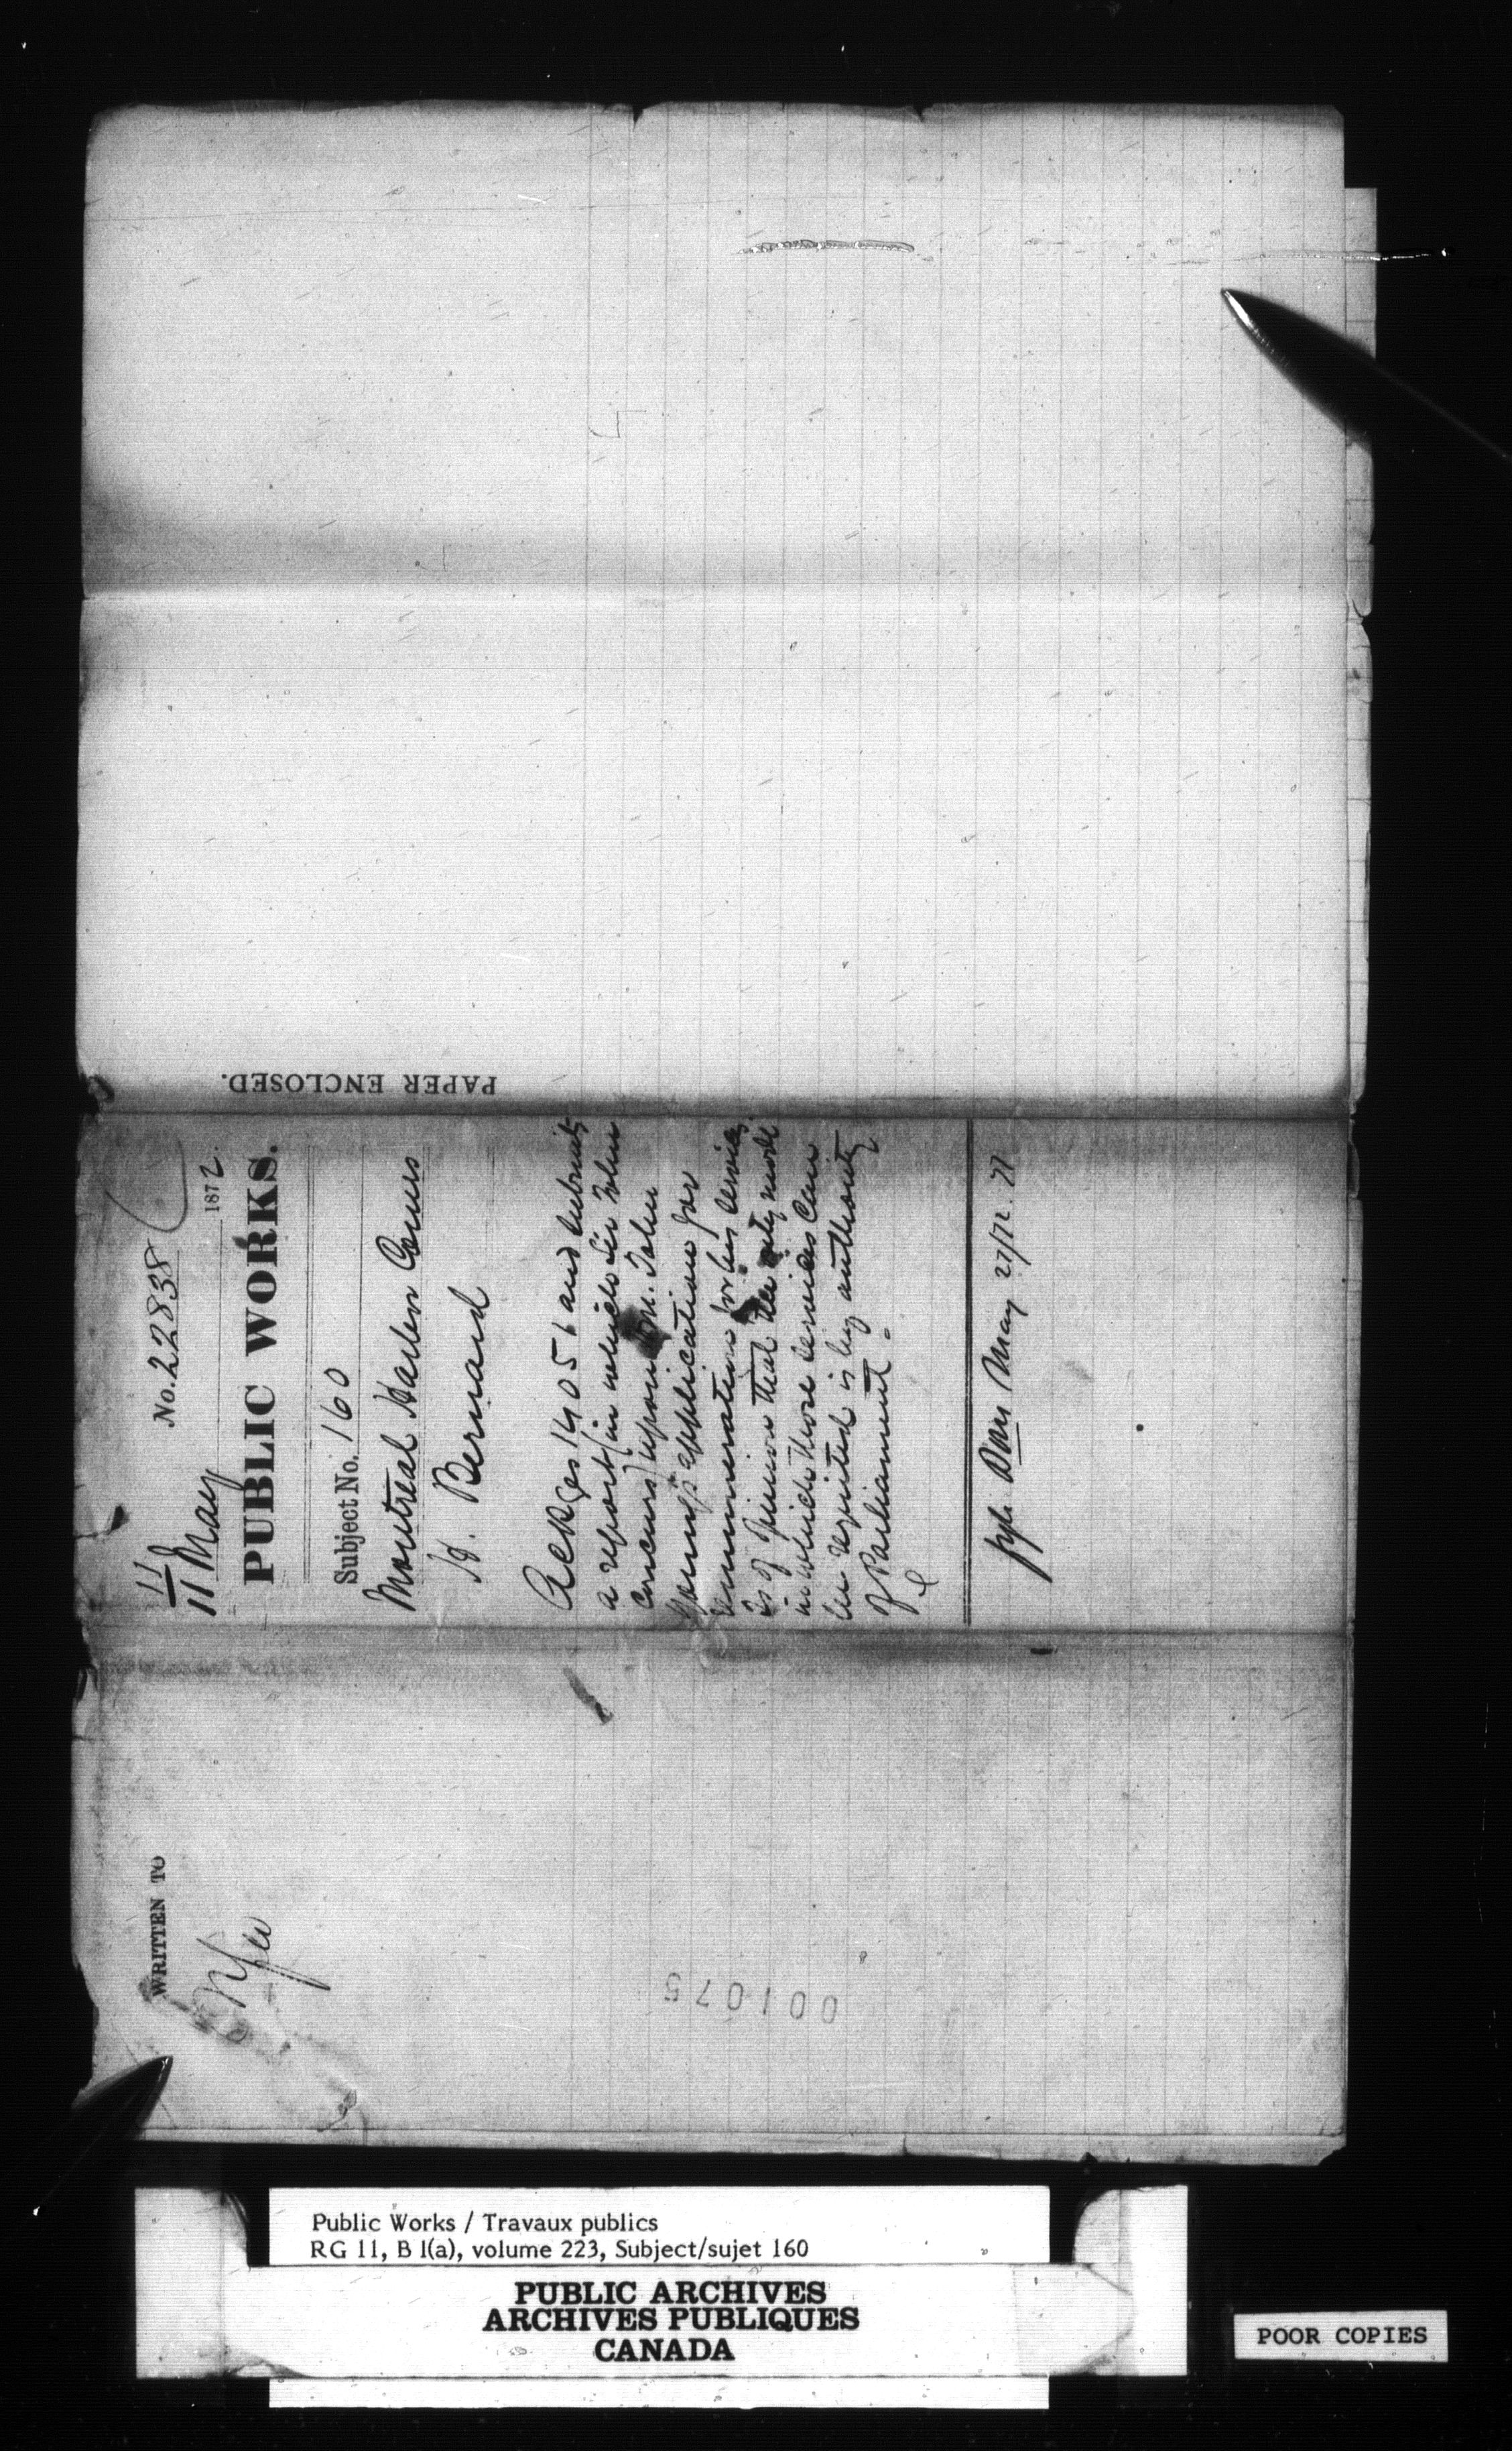 No. 22838
11
11 May 1872.
PUBLIC WORKS.
Subject No. 160
Montreal Harbor Comrs
H. Bernard
Ackges 14051 and submits
a report (in which Sir John
concurs) upon Hon. John
Young's application for
remuneration for his services.
Is of opinion that the only mode
in which those services can
be requited is by authority
of Parliament.
May 27/72.
PAPER ENCLOSED.
WRITTEN TO
001075
Public Works / Travaux publics
RG 11, B 1(a), volume 223, Subject/sujet 160
PUBLIC ARCHIVES
ARCHIVES PUBLIQUES
CANADA
POOR COPIES